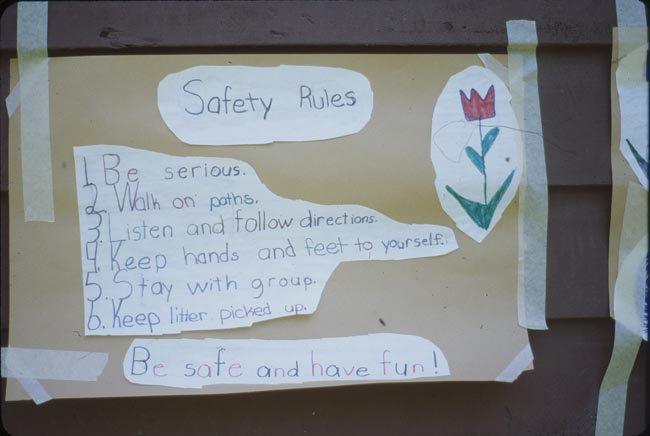 Safety Rules
1. Be serious.
2. Walk on paths.
3. Listen and follow directions.
4. Keep hands and feet to yourself.
5. Stay with group.
6. Keep litter picked up.
Be safe and have fun!